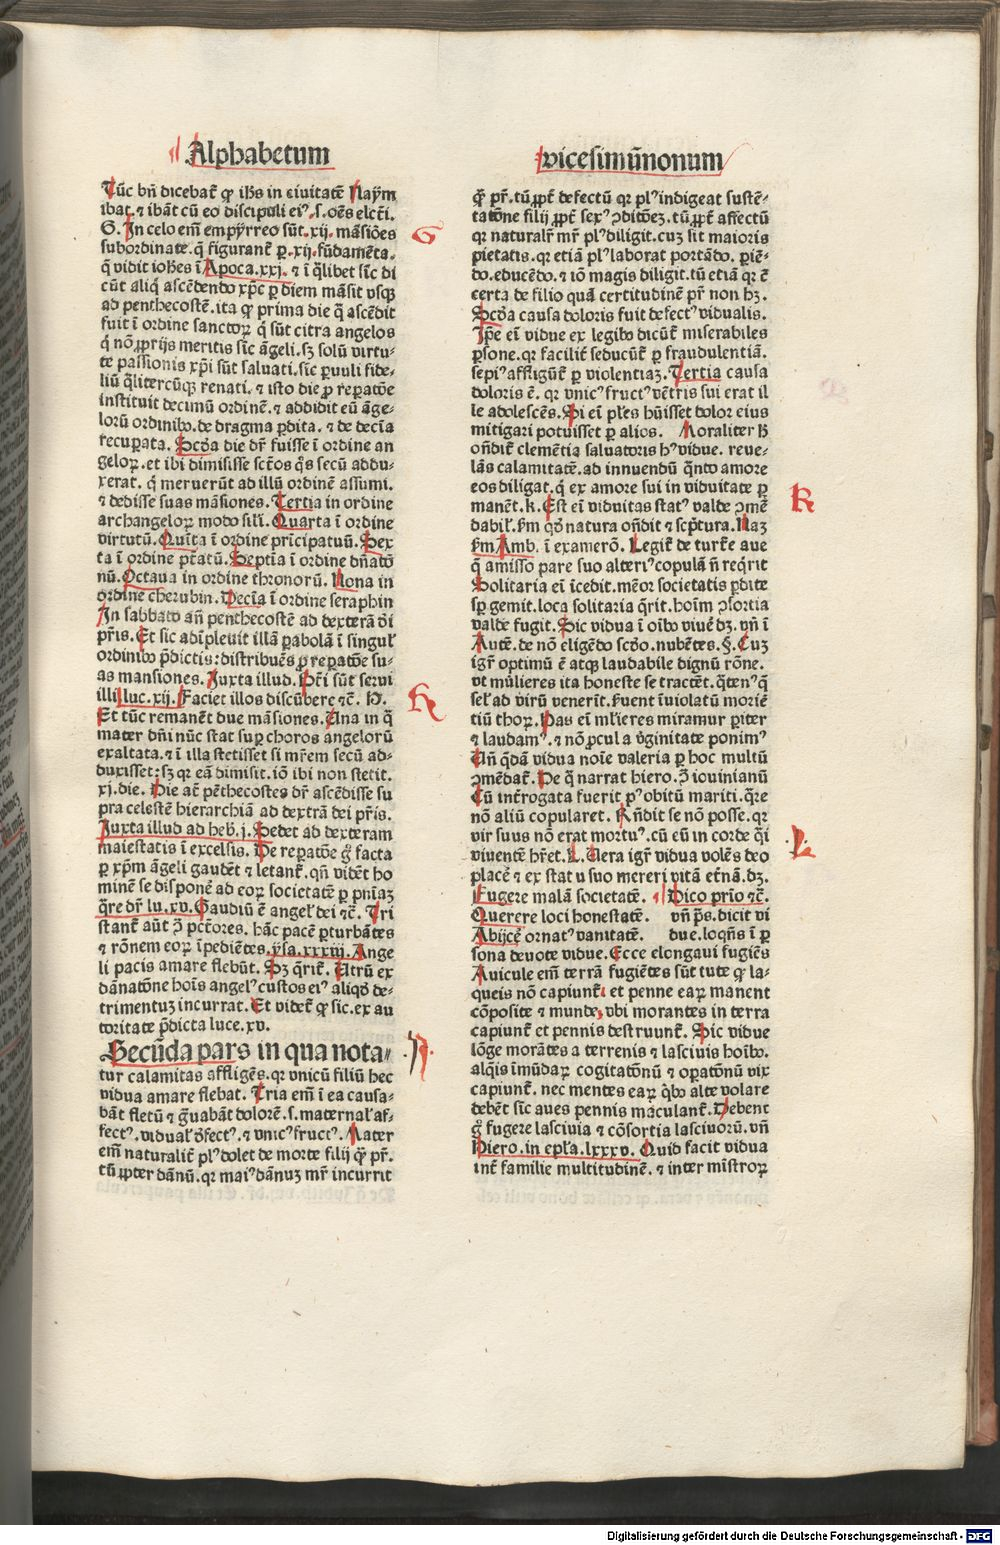 Alphabetum
Tūc bn̄ dicebat̄ ꝙ ih̄s in ciuitatē Naym
ibat. ⁊ ibāt cū eo discipuli eiꝰ. s. oēs elcti.
G. In celo em̄ empyrreo sūt. xij. māsiões
subordinate. q̄ figurant̄ ꝑ. xij. fūdamēta.
q̄ vidit ioh̄es ī Apoca. xxj. ⁊ ī q̄libet sīc di
cūt aliq̄ ascēdendo xp̄c ꝑ diem māsit vsqꝫ
ad penthecostē. ita ꝙ prima die q̄ ascēdit
fuit ī ordine sanctoꝝ q̄ sūt citra angelos
q̄ nō ꝓprijs meritis sīc āgeli. sꝫ solū virtu-
te passionis xp̄i sūt saluati. sīc ꝑuuli fide-
liū q̄litercūqꝫ renati. ⁊ isto die ꝓ reꝑatōe
instituit decimū ordinē. ⁊ addidit eū āge-
lorū ordinibꝰ. de dragma ꝑdita. ⁊ de decīa
recuꝑata. Scd̄a die dr̄ fuisse ī ordine an
geloꝝ. et ibi dimisisse sctōs q̄s secū addu-
xerat. q̄ meruerūt ad illū ordinē assumi.
⁊ dedisse suas māsiones. Tertia in ordine
archangeloꝝ modo sili. Quarta ī ordine
virtutū. Quīta ī ordine prīcipatuū. Sex
ta ī ordine ptātū. Septīa ī ordine dn̄atō
nū. Octaua in ordine thronorū. Nona in
ordine cherubin. Decīa ī ordine seraphin
In sabbato an̄ penthecostē ad dexterā dī
pr̄is. Et sic adīpleuit illā ꝑabolā ī singul
ordinibꝰ p̄dictis: distribuēs ꝓ reꝑatōe su-
as mansiones. Juxta illud. Bt̄i sūt serui
illi luc. xij. Faciet illos discūbere ⁊c̄. H.
Et tūc remanēt due māsiones. Una in q̄
mater dn̄i nūc stat suꝑ choros angelorū
exaltata. ⁊ ī illa stetisset si mr̄em secū ad-
duxisset: sꝫ qr eā dimisit. iō ibi non stetit.
xj. die. Die at̄ pēthecostes dr̄ ascēdisse su
pra celestē hierarchiā ad dextrā dei pr̄is.
Juxta illud ad heb. j. Sedet ad dexteram
maiestatis ī excelsis. De reꝑatōe gͦ facta
ꝑ xp̄m āgeli gaudēt ⁊ letant̄. qn̄ vidēt ho
minē se disponē ad eoꝝ societatē ꝑ pn̄iaꝫ
q̄re dr̄ lu. xv. Gaudiū ē angel dei ⁊c̄. Tri
stant̄ aūt ꝓ pctōres. hāc pacē ꝑturbātes
⁊ rōnem eoꝝ īpediētes. ysa. xxxiij. Ange
li pacis amare flebūt. Sꝫ q̄rit̄. Utrū ex
dānatōne hoīs angelꝰ custos eiꝰ aliqd̄ de-
trimentuꝫ incurrat. Et videt̄ ꝙ sic. ex au
toritate p̄dicta luce. xv.
Secūda pars in qua nota-
tur calamitas affligēs. qr vnicū filiū hec
vidua amare flebat. Tria em̄ ī ea causa-
bāt fletū ⁊ ḡuabāt dolorē. s. maternal af-
fectꝰ. vidual defectꝰ. ⁊ vnicꝰ fructꝰ. Mater
em̄ naturalit̄ plꝰ dolet de morte filij q̄ꝫ pr̄.
tū ꝓpter dānū. qr maiꝰ dānuꝫ mr̄ incurrit
vicesimūnonum
q̄ꝫ pr̄. tū ꝓpt̄ defectū qr plꝰ indigeat sustē-
tatōne filij ꝓpt̄ sexꝰ ꝯditōeꝫ. tū ꝓpt̄ affectū
qr naturalr̄ mr̄ plꝰ diligit. cuꝫ sit maioris
pietatis. qr etiā plꝰ laborat portādo. ꝑiē-
do. educēdo. ⁊ iō magis diligit. tū etiā qr ē
certa de filio quā certitudinē pr̄ non hꝫ.
Scd̄a causa doloris fuit defectꝰ vidualis.
Ip̄e em̄ vidue ex legibꝰ dicūt̄ miserabiles
ꝑsone. qr facilit̄ seducūt̄ ꝑ fraudulentiā.
sepiꝰ affligūt̄ ꝑ violentiaꝫ. Tertia causa
doloris ē. qr vnicꝰ fructꝰ vētris sui erat il
le adolescēs. Si em̄ pl̄es hūisset dolor eius
mitigari potuisset ꝑ alios. Moraliter h̄
on̄dit̄ clemētia saluatoris hꝰ vidue. reue-
lās calamitatē. ad innuendū q̄nto amore
eos diligat. q̄ ex amore sui in viduitate ꝑ
manēt. k. Est em̄ viduitas statꝰ valde ꝯmē
dabil. fm qd̄ natura on̄dit ⁊ scp̄tura. Naꝫ
fm Amb. ī examerō. Legit̄ de turt̄e aue
q̄ amisso pare suo alteriꝰ copulā n̄ req̄rit
Solitaria em̄ īcedit. memor societatis ꝑdite
sꝑ gemit. loca solitaria q̄rit. hoīm ꝯsortia
valde fugit. Sic vidua ī oībꝰ viuē dꝫ. vn̄ ī
Autē. de nō eligēdo scd̄o. nubētes. §. Cuꝫ
igr̄ optimū ē atqꝫ laudabile dignū rōne.
vt mulieres ita honeste se tractēt. q̄tenꝰ q̄
sel ad virū venerīt. ẜuent īuiolatū moriē
tiū thoꝝ. Has em̄ ml̄ieres miramur ꝑiter
⁊ laudamꝰ. ⁊ nō ꝓcul a v̄ginitate ponimꝰ
Un̄ q̄dā vidua noīe valeria ꝑ hoc multū
ꝯmēdat̄. De q̄ narrat hiero. ꝯ iouinianū
Cū int̄rogata fuerit pꝰ obitū mariti. q̄re
nō aliū copularet. Rn̄dit se nō posse. qr
vir suus nō erat mortuꝰ. cū eū in corde q̄i
viuentē hr̄et. L. Uera igr̄ vidua volēs deo
placē ⁊ ex stat u suo mereri vitā et̄nā. dꝫ.
Fugere malā societatē. Dico prīo ⁊c̄.
Querere loci honestatē. vn̄ ps. dicit vi
Abijcē ornatꝰ vanitatē. due. loqn̄s ī ꝑ
sona deuote vidue. Ecce elongaui fugiēs
Auicule em̄ terrā fugiētes sūt tute ꝙ la-
queis nō capiunt̄: et penne eaꝝ manent
cōposite ⁊ munde, vbi morantes in terra
capiunt̄ et pennis destruunt̄. Sic vidue
lōge morātes a terrenis ⁊ lasciuis hoībꝰ.
alq̄is īmūdaꝝ cogitatōnū ⁊ oꝑatōnū vix
capiunt̄. nec mentes eaꝝ q̄bꝰ alte volare
debēt sīc aues pennis maculant̄. Debent
gͦ fugere lasciuia ⁊ cōsortia lasciuorū. vn̄
Hiero. in epl̄a. lxxxv. Quid facit vidua
int̄ familie multitudinē. ⁊ inter mīstroꝝ
G
H
K
L
Digitalisierung gefördert durch die Deutsche Forschungsgemeinschaft - DFG